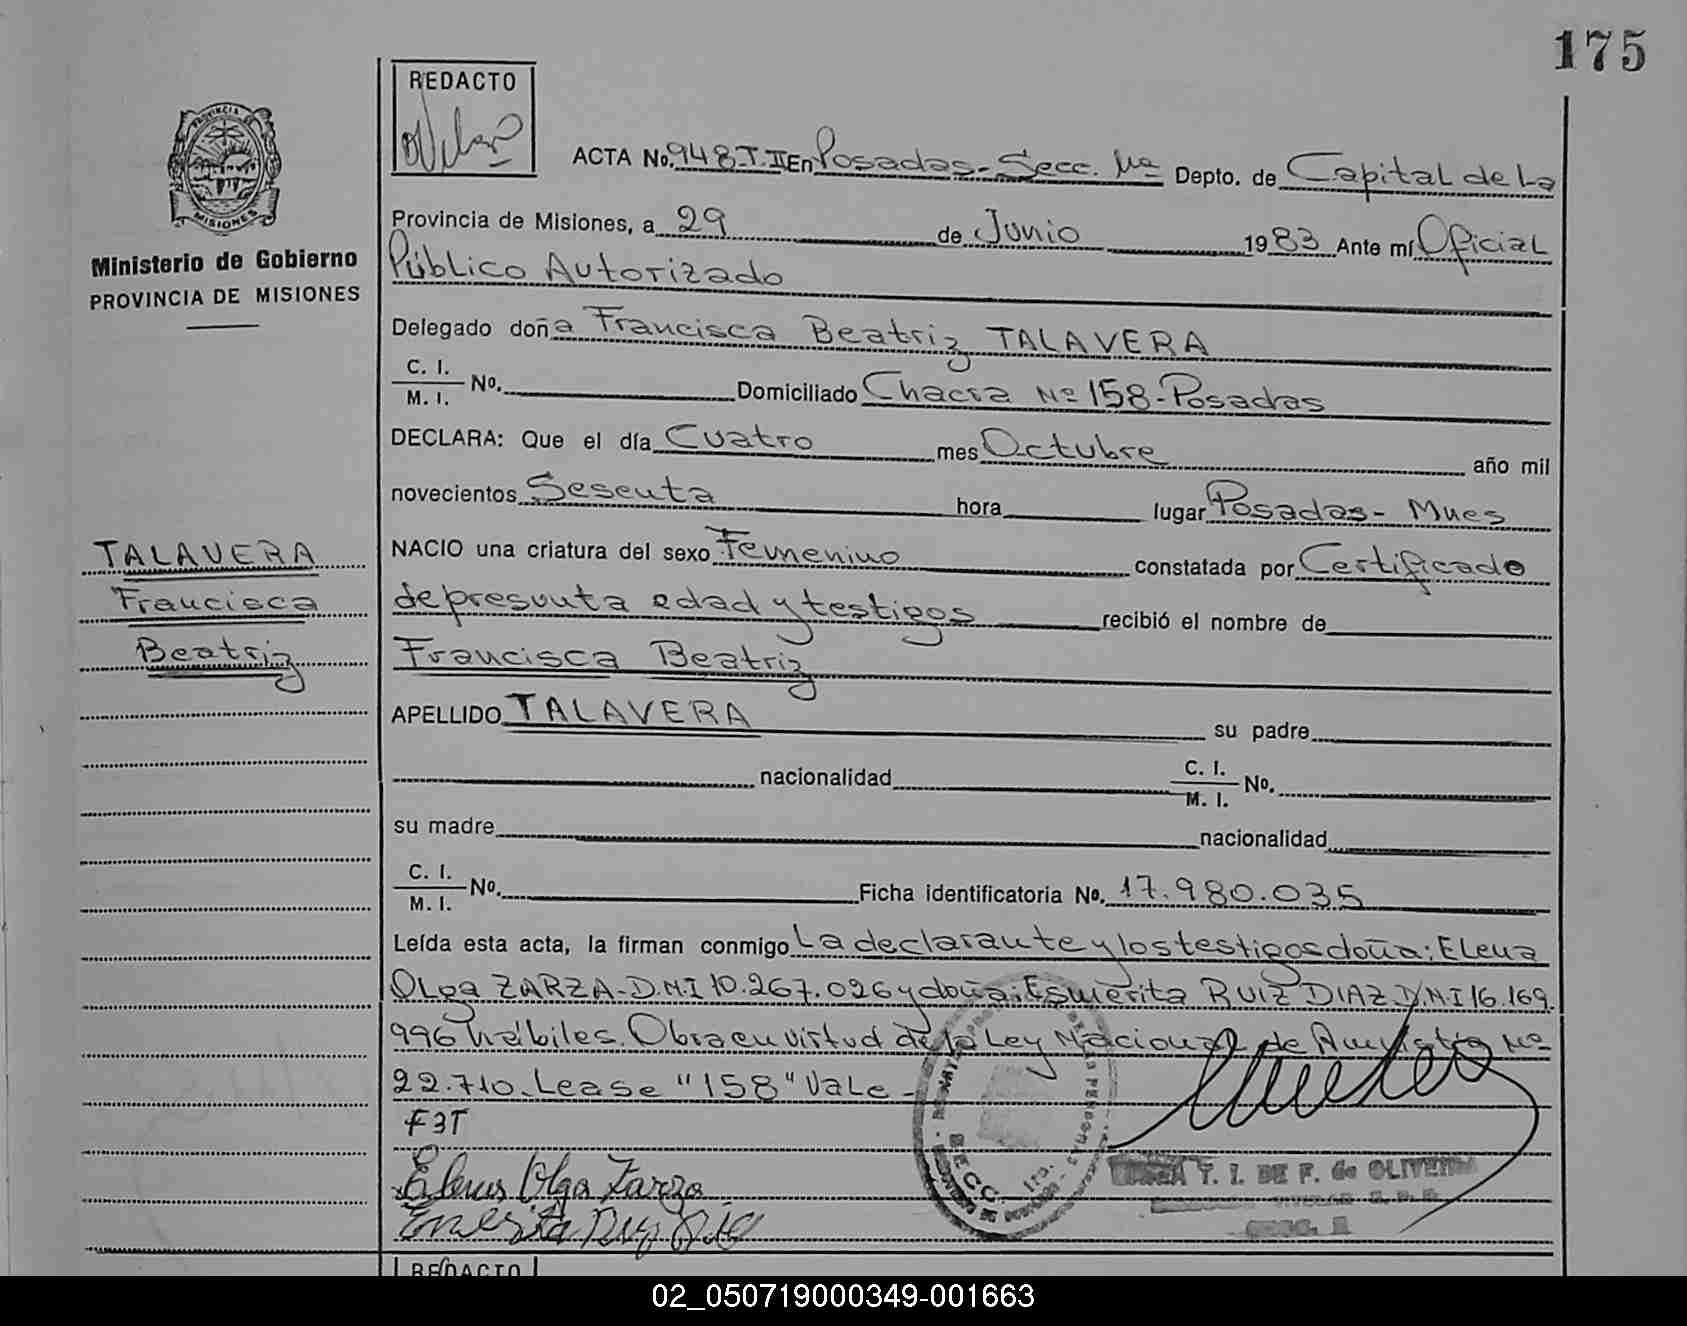 175
REDACTO
ACTA No. 948 T. II En Posadas - Secc. 1ra Depto. de Capital de La
Provincia de Misiones, a 29 de Junio 1983 Ante mí Oficial
Público Autorizado
Delegado doña Francisca Beatriz TALAVERA
C. I.
M. I. No. Domiciliado Chacra Nº 158 - Posadas
DECLARA: Que el día Cuatro mes Octubre año mil
novecientos Sesenta hora lugar Posadas - Mnes
NACIO una criatura del sexo Femenino constatada por Certificado
de presunta edad y testigos recibió el nombre de
Francisca Beatriz
APELLIDO TALAVERA su padre
nacionalidad C. I.
M. I. No.
su madre nacionalidad
C. I.
M. I. No. Ficha identificatoria No. 17.980.035
Leída esta acta, la firman conmigo La declarante y los testigos doña: Elena
Olga ZARZA - D.N.I 10.267.026 y doña: Esmerita RUIZ DIAZ D.N.I 16.169.
996 hábiles. Obra en virtud de la Ley Nacional de Amnistía Nº
22.710. Lease "158" Vale -
F3T
Elena Olga Zarza
SECC. 1ra.
T. I. DE F. de OLIVEIRA
Ministerio de Gobierno
PROVINCIA DE MISIONES
TALAVERA
Francisca
Beatriz
REDACTO
02_050719000349-001663